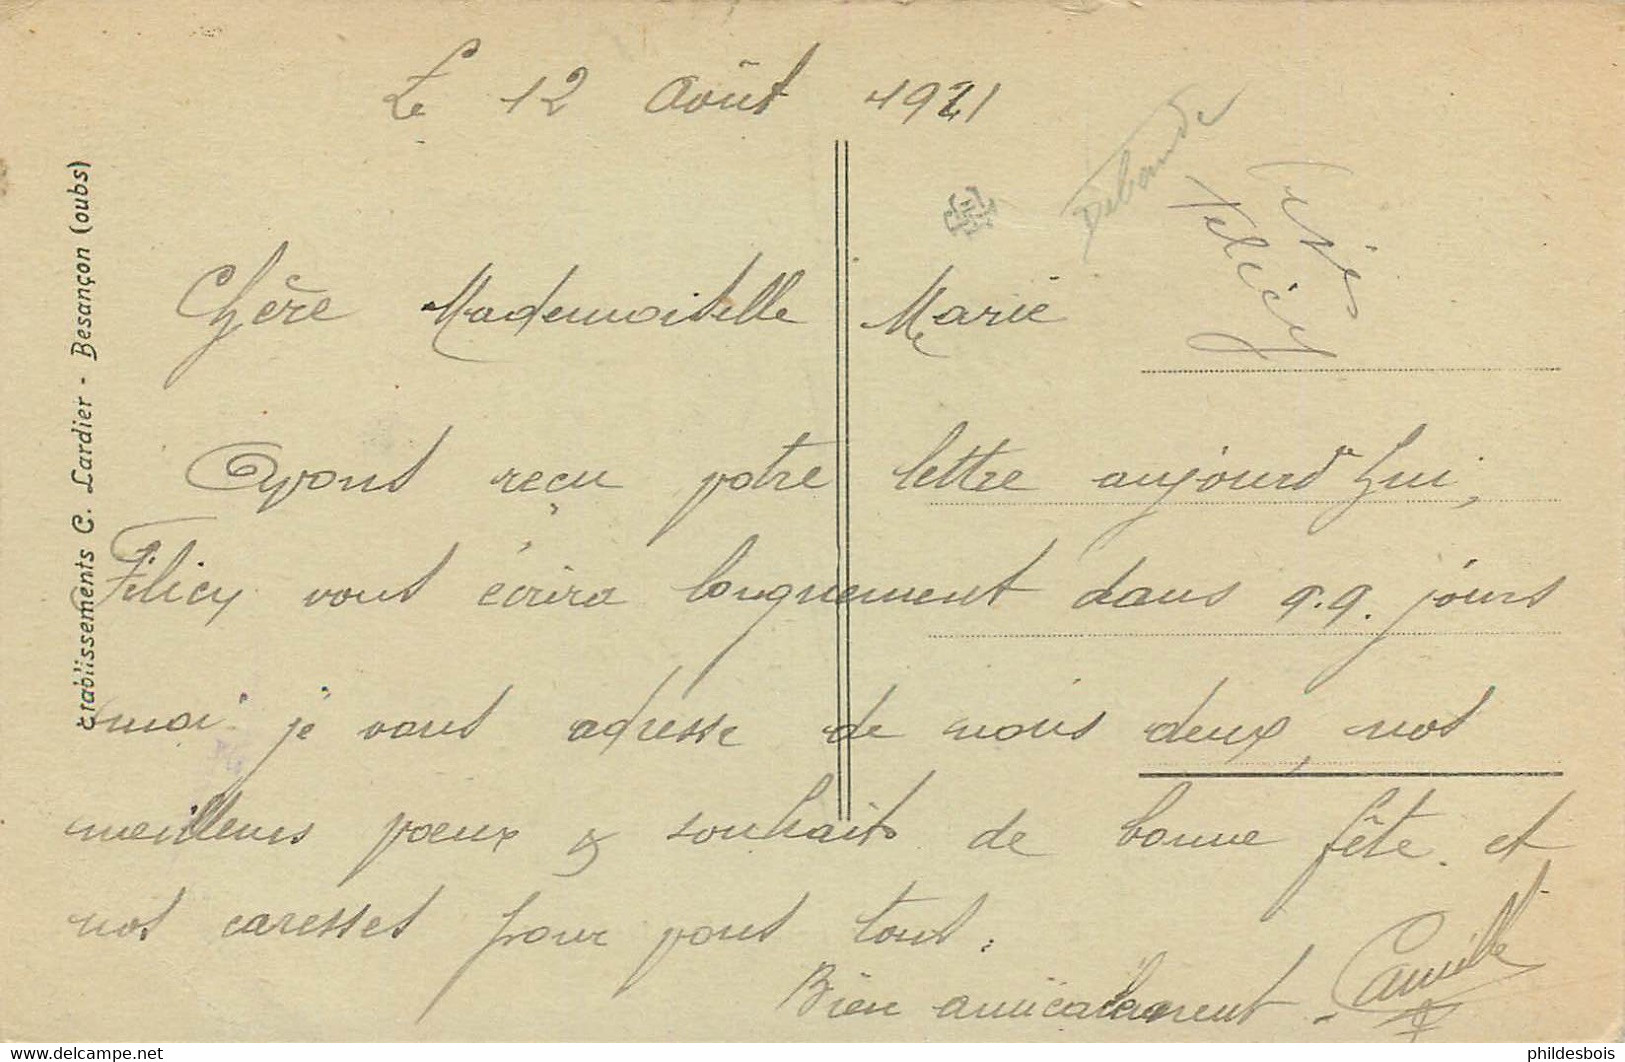 Le 12 Août 1921
Chère Mademoiselle Marie
Ayant reçu votre lettre aujourd'hui,
Félicy vous écrira longuement dans q.q. jours
moi je vous adresse de nous deux, nos
meilleurs voeux & souhaits de bonne fête. et
nos caresses pour vous tous.
Bien amicalement - Camille
Felicy
Etablissements C. Lardier - Besançon (oubs)
phildesbois